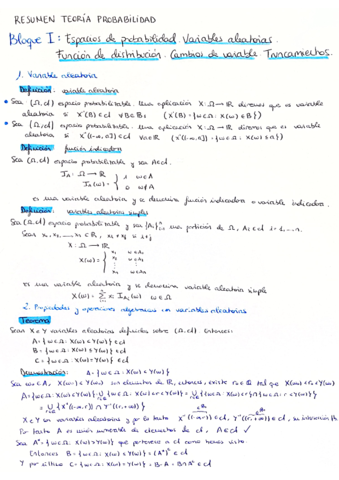 RESUMEN TEORÍA PROBABILIDAD
Bloque I: Espacios de probabilidad. Variables aleatorias.
Función de distribución. Cambios de variable. Truncamientos.
1. Variable aleatoria
Definición variable aleatoria
• Sea (Ω, 𝒜) espacio probabilizable. Una aplicación X: Ω → ℝ diremos que es variable
aleatoria si X⁻¹(B) ∈ 𝒜 ∀B ∈ 𝔅 (X⁻¹(B) = {w ∈ Ω : X(w) ∈ B})
• Sea (Ω, 𝒜) espacio probabilizable. Una aplicación X: Ω → ℝ diremos que es variable
aleatoria si X⁻¹(-∞, a] ∈ 𝒜 ∀a ∈ ℝ (X⁻¹(-∞, a] = {w ∈ Ω : X(w) ≤ a})
Definición función indicadora
Sea (Ω, 𝒜) espacio probabilizable y sea A ∈ 𝒜.
I_A : Ω → ℝ
I_A(w) = { 1 w ∈ A
0 w ∉ A
es una variable aleatoria y se denomina función indicadora o variable indicadora.
Definición variables aleatorias simples
Sea (Ω, 𝒜) espacio probabilizable y sea {A_i}_{i=1}^n una partición de Ω, A_i ∈ 𝒜 i=1,...,n.
Sean x₁, x₂, ..., x_n ∈ ℝ, x_i ≠ x_j si i ≠ j
X: Ω → ℝ
X(w) = { x₁ w ∈ A₁
x₂ w ∈ A₂
⋮
x_n w ∈ A_n
es una variable aleatoria y se denomina variable aleatoria simple
X(w) = Σ_{i=1}^n x_i I_{A_i}(w) w ∈ Ω
2. Propiedades y operaciones algebraicas con variables aleatorias
Teorema
Sean X e Y variables aleatorias definidas sobre (Ω, 𝒜). Entonces:
A = {w ∈ Ω : X(w) < Y(w)} ∈ 𝒜
B = {w ∈ Ω : X(w) ≤ Y(w)} ∈ 𝒜
C = {w ∈ Ω : X(w) = Y(w)} ∈ 𝒜
Demostración: A = {w ∈ Ω : X(w) < Y(w)}
Sea w ∈ A, X(w) < Y(w) son elementos de ℝ, entonces, existe r ∈ ℚ tal que X(w) < r < Y(w)
X e Y son variables aleatorias y por lo tanto
Por tanto A es unión numerable de elementos de 𝒜, A ∈ 𝒜 ✓
Entonces B = {w ∈ Ω : X(w) ≤ Y(w)}
Y por último C = {w ∈ Ω : X(w) = Y(w)} = B - A = B ∩ Aᶜ ∈ 𝒜